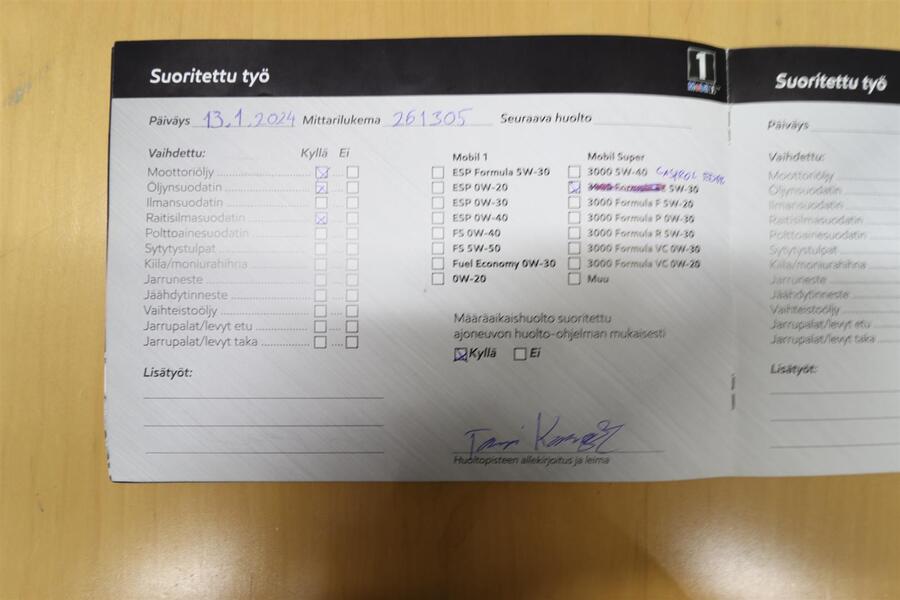 Suoritettu työ
1
Mobil 1
Päiväys 13.1.2024 Mittarilukema 261305 Seuraava huolto
Vaihdettu: Kyllä Ei
Moottoriöljy
Öljynsuodatin
Ilmansuodatin
Raitisilmasuodatin
Polttoainesuodatin
Sytytystulpat
Kiila/moniurahihna
Jarruneste
Jäähdytinneste
Vaihteistoöljy
Jarrupalat/levyt etu
Jarrupalat/levyt taka
Lisätyöt:
Mobil 1
ESP Formula 5W-30
ESP 0W-20
ESP 0W-30
ESP 0W-40
FS 0W-40
FS 5W-50
Fuel Economy 0W-30
0W-20
Mobil Super
3000 5W-40 CASTROL EDGE
3000 Formula 5W-30
3000 Formula F 5W-20
3000 Formula P 0W-30
3000 Formula R 5W-30
3000 Formula VC 0W-30
3000 Formula VC 0W-20
Muu
Määräaikaishuolto suoritettu
ajoneuvon huolto-ohjelman mukaisesti
Kyllä Ei
Huoltopisteen allekirjoitus ja leima
Suoritettu työ
Päiväys
Vaihdettu:
Moottoriöljy
Öljynsuodatin
Ilmansuodatin
Raitisilmasuodatin
Polttoainesuodatin
Sytytystulpat
Kiila/moniurahihna
Jarruneste
Jäähdytinneste
Vaihteistoöljy
Jarrupalat/levyt etu
Jarrupalat/levyt taka
Lisätyöt: